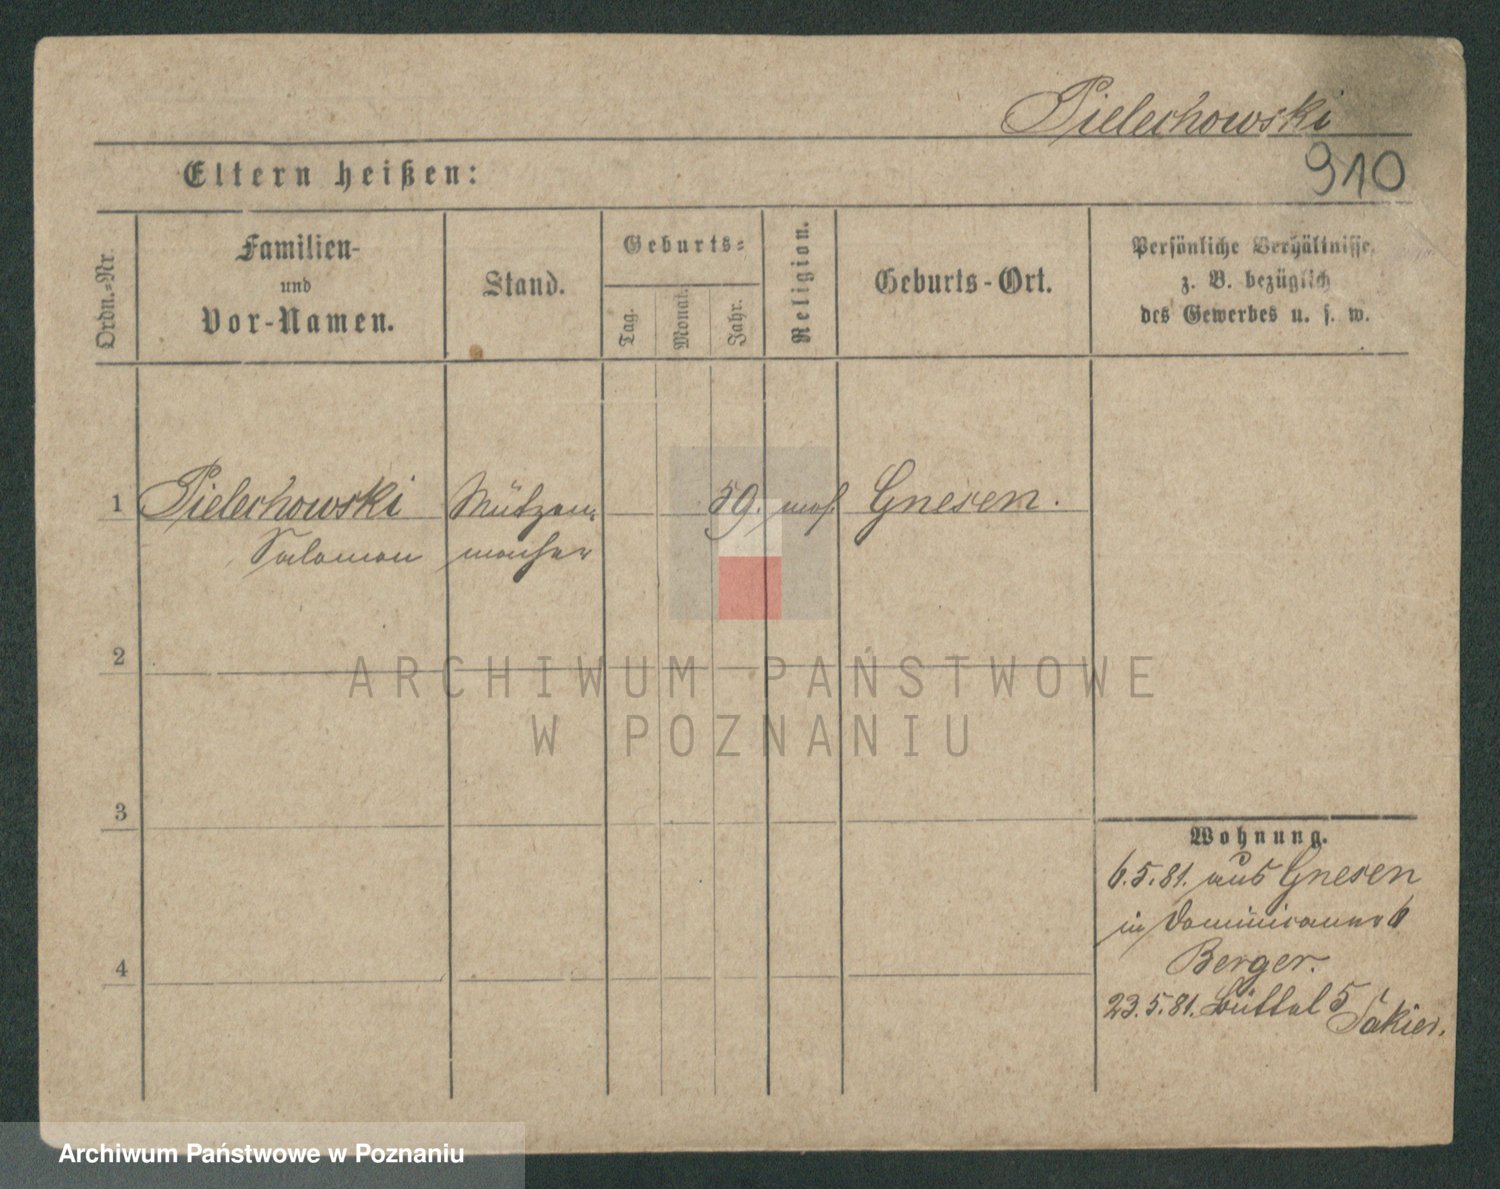 Pielechowski
910
Eltern heißen:
Ordn.-Nr.
Familien-
und
Vor-Namen.
Stand.
Geburts-
Tag.
Monat.
Jahr.
Religion.
Geburts-Ort.
Persönliche Verhältnisse,
z. B. bezüglich
des Gewerbes u. s. w.
1
Pielechowski
Salomon
Mützen-
macher
59.
mos.
Gnesen.
2
3
4
Wohnung.
6.5.81. aus Gnesen
in Dominicaner 6
Berger.
23.5.81. Büttel 5
ARCHIWUM PAŃSTWOWE
W POZNANIU
Archiwum Państwowe w Poznaniu